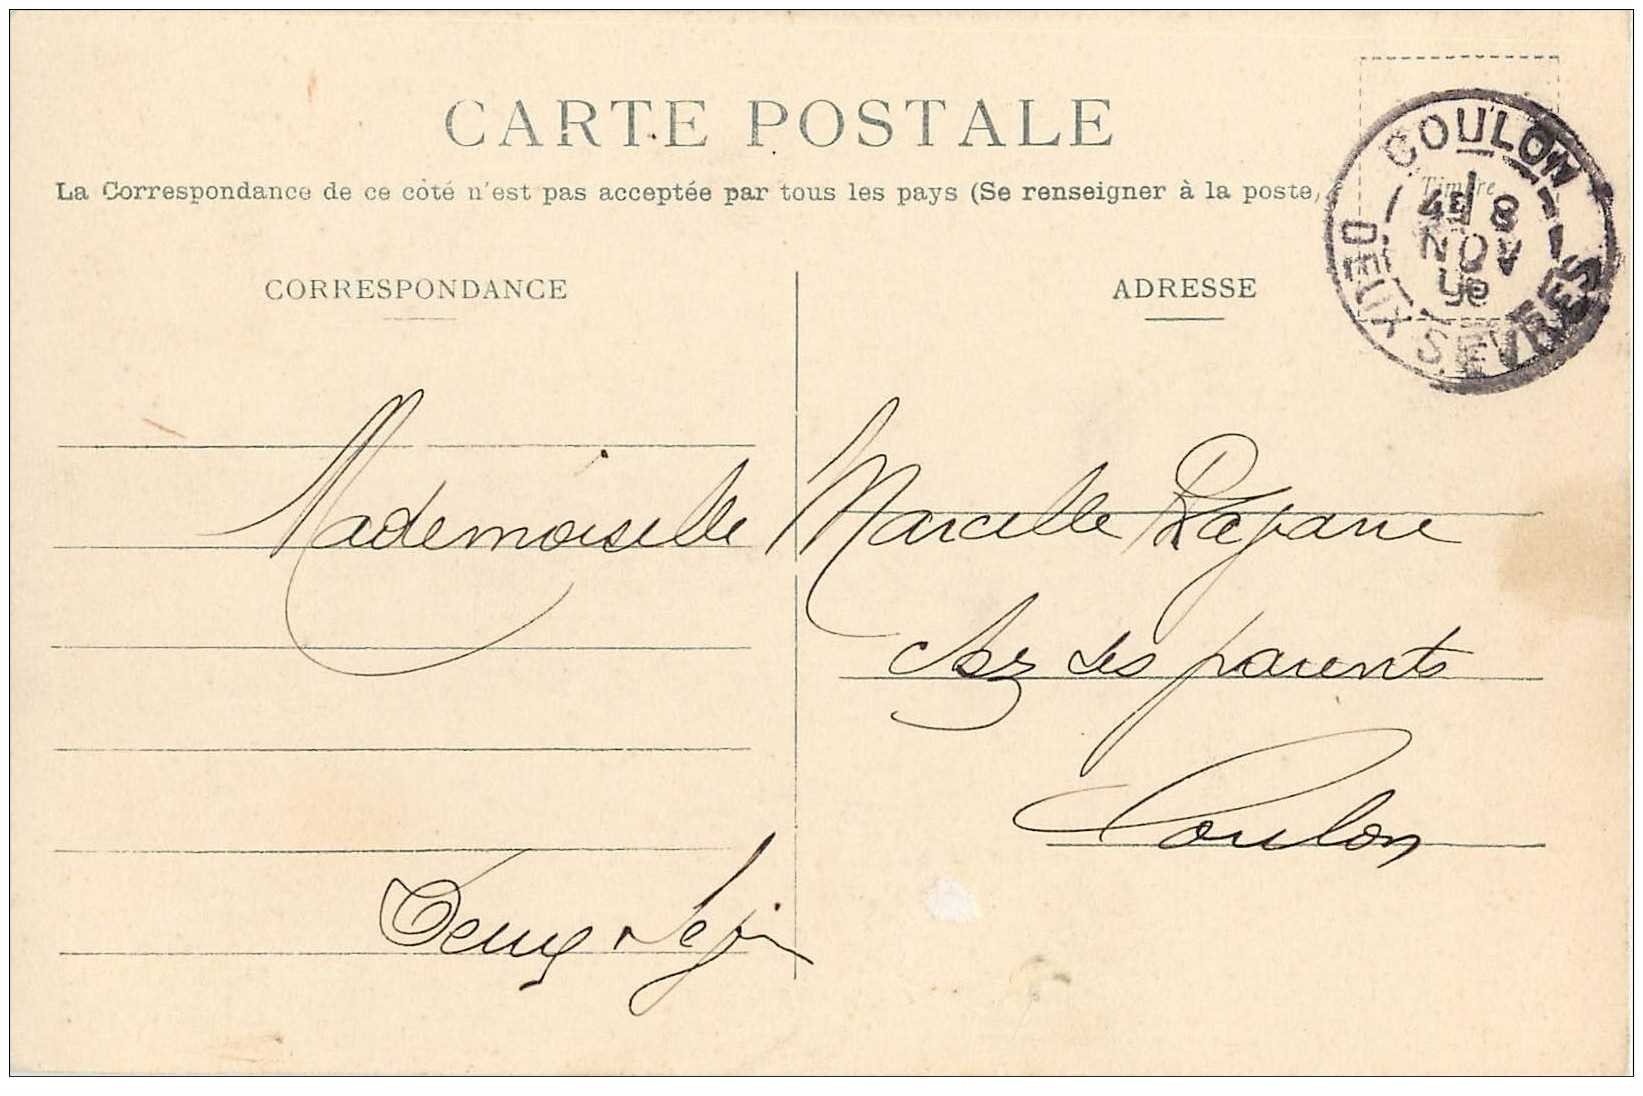 CARTE POSTALE
La Correspondance de ce côté n'est pas acceptée par tous les pays (Se renseigner à la poste)
CORRESPONDANCE
ADRESSE
Timbre
COULON
8
NOV
DEUX SEVRES
Mademoiselle Marcelle
chez ses parents
Coulon
Deux